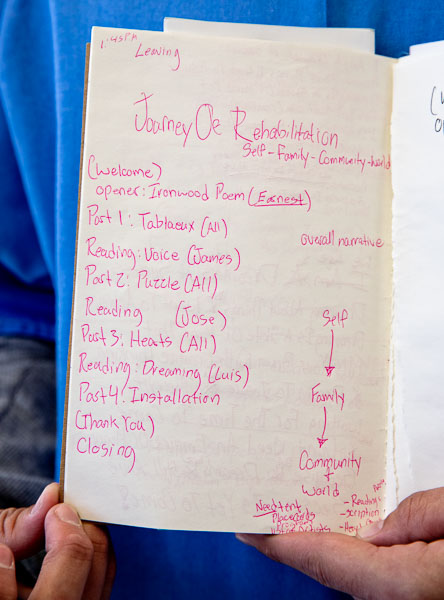 1:45P.M
Leaving
Journey Oe Rehabilitation
Self-Family-Community-world
(Welcome)
opener: Ironwood Poem (Earnest)
Part 1: Tablaeux (All)
Reading: Voice (James)
Part 2: Puzzle (All)
Reading (Jose)
Part 3: Hearts (All)
Reading: Dreaming (Luis)
Part 4: Installation
(Thank You)
Closing
overall narrative
Self
Family
Community
+
World
Need tent
Placecards
- Reading